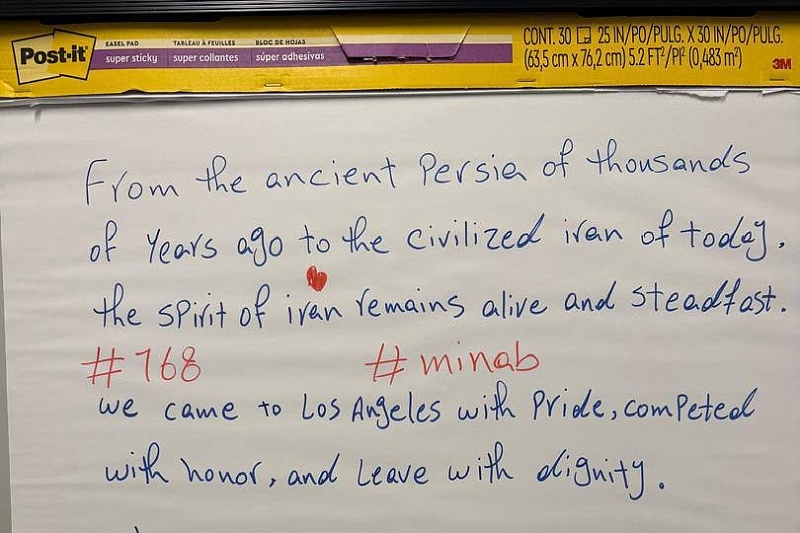 Post-it
EASEL PAD
super sticky
TABLEAU À FEUILLES
super collantes
BLOC DE HOJAS
súper adhesivas
CONT. 30 25 IN/PO/PULG. X 30 IN/PO/PULG.
(63,5 cm x 76,2 cm) 5.2 FT²/PI² (0,483 m²)
3M
From the ancient Persia of thousands
of Years ago to the civilized iran of today.
the spirit of iran remains alive and steadfast.
#168 #minab
we came to Los Angeles with Pride, competed
with honor, and Leave with dignity.